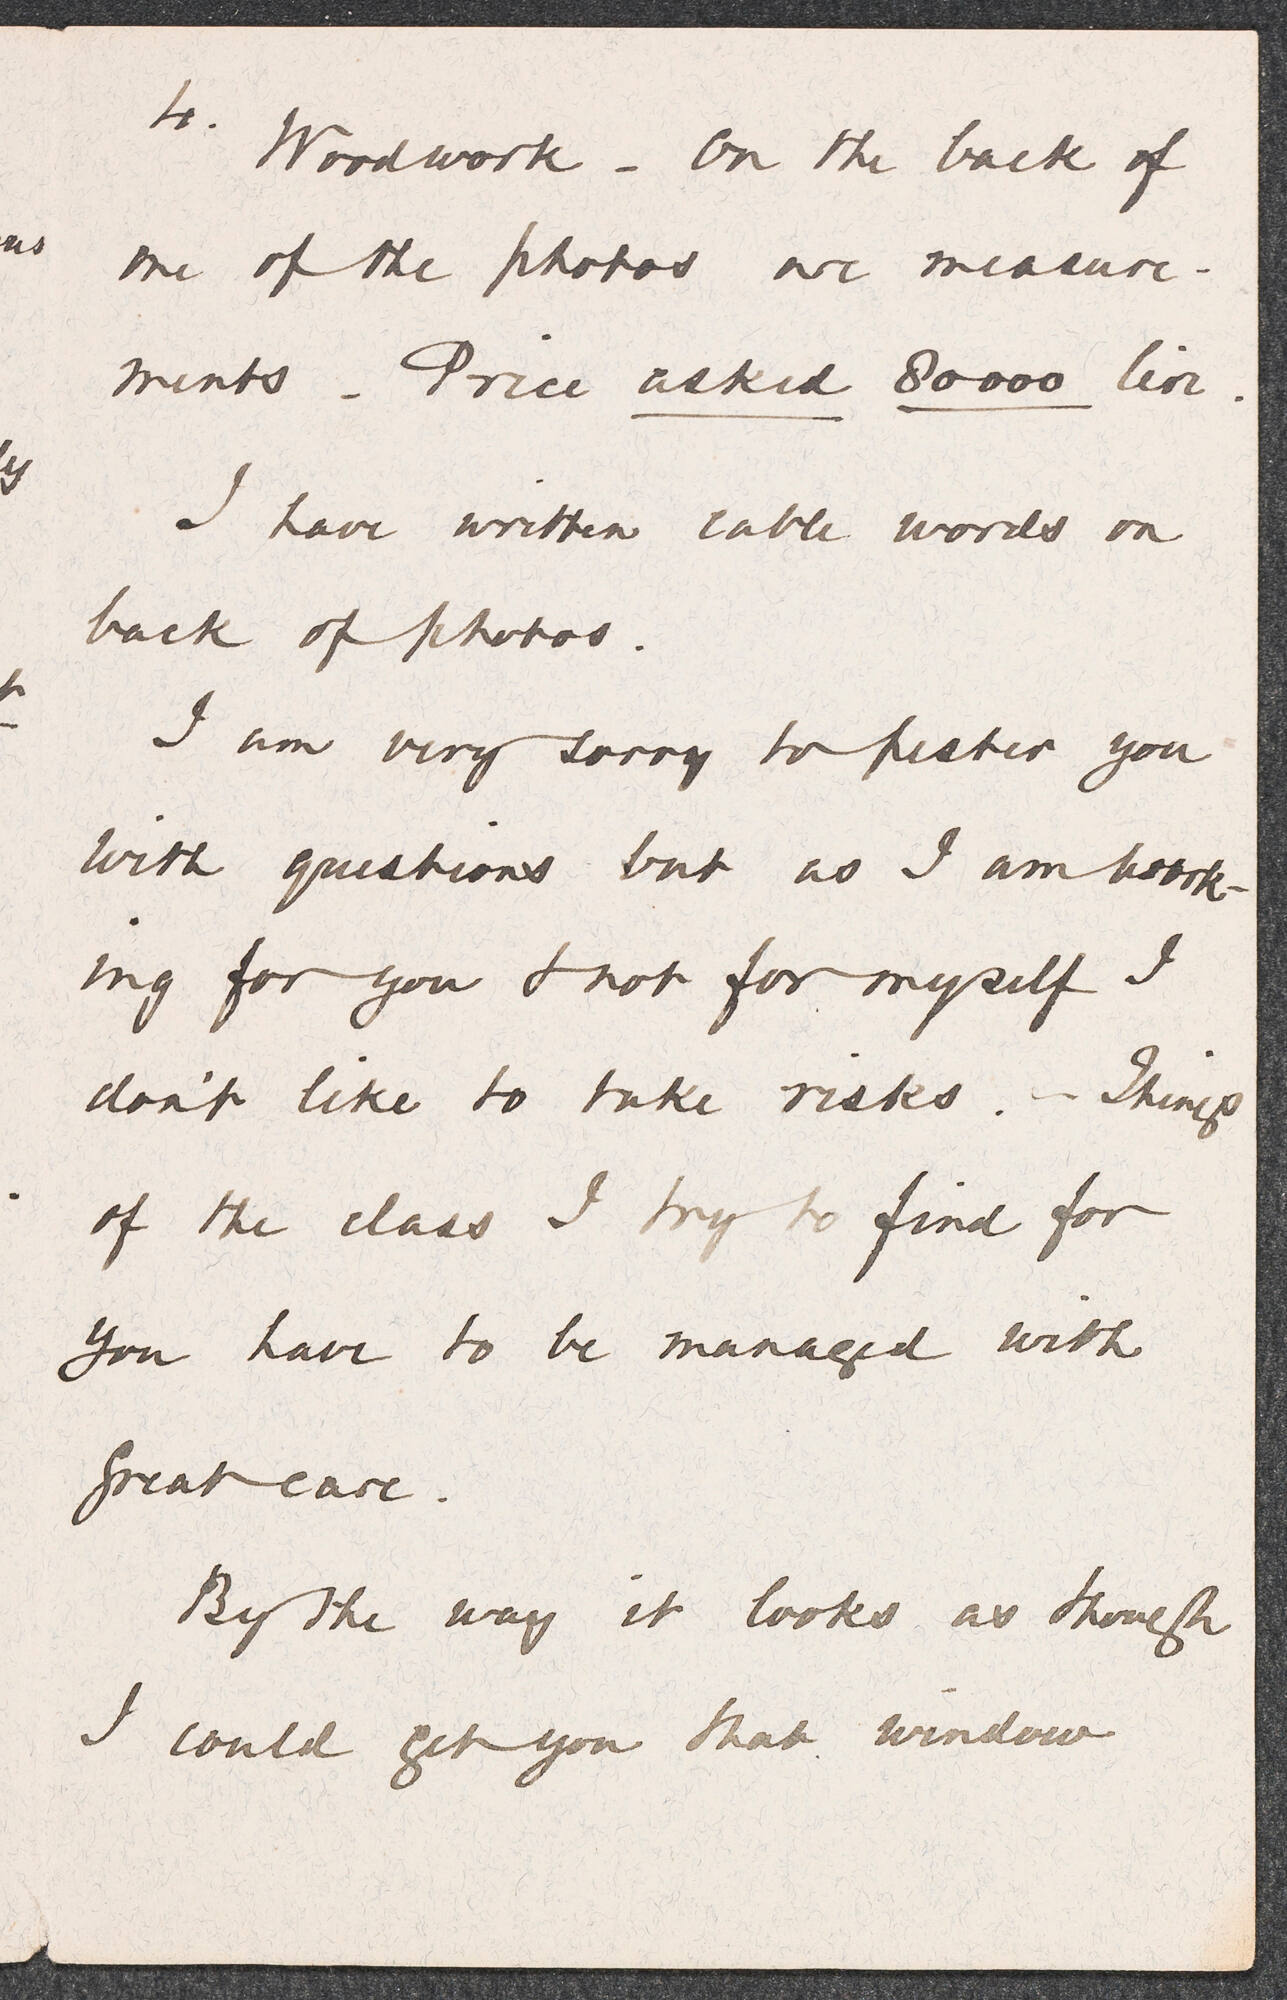 4.
Woodwork - On the back of
one of the photos are measure-
ments - Price asked 80000 lire.
I have written cable words on
back of photos.
I am very sorry to pester you
with questions but as I am work-
ing for you & not for myself I
don't like to take risks. - Things
of the class I try to find for
you have to be managed with
great care.
By the way it looks as though
I could get you that window